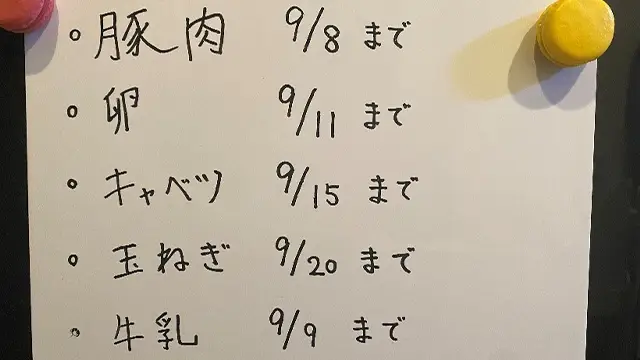 。豚肉 9/8 まで
。卵 9/11 まで
。キャベツ 9/15 まで
。玉ねぎ 9/20 まで
。牛乳 9/9 まで